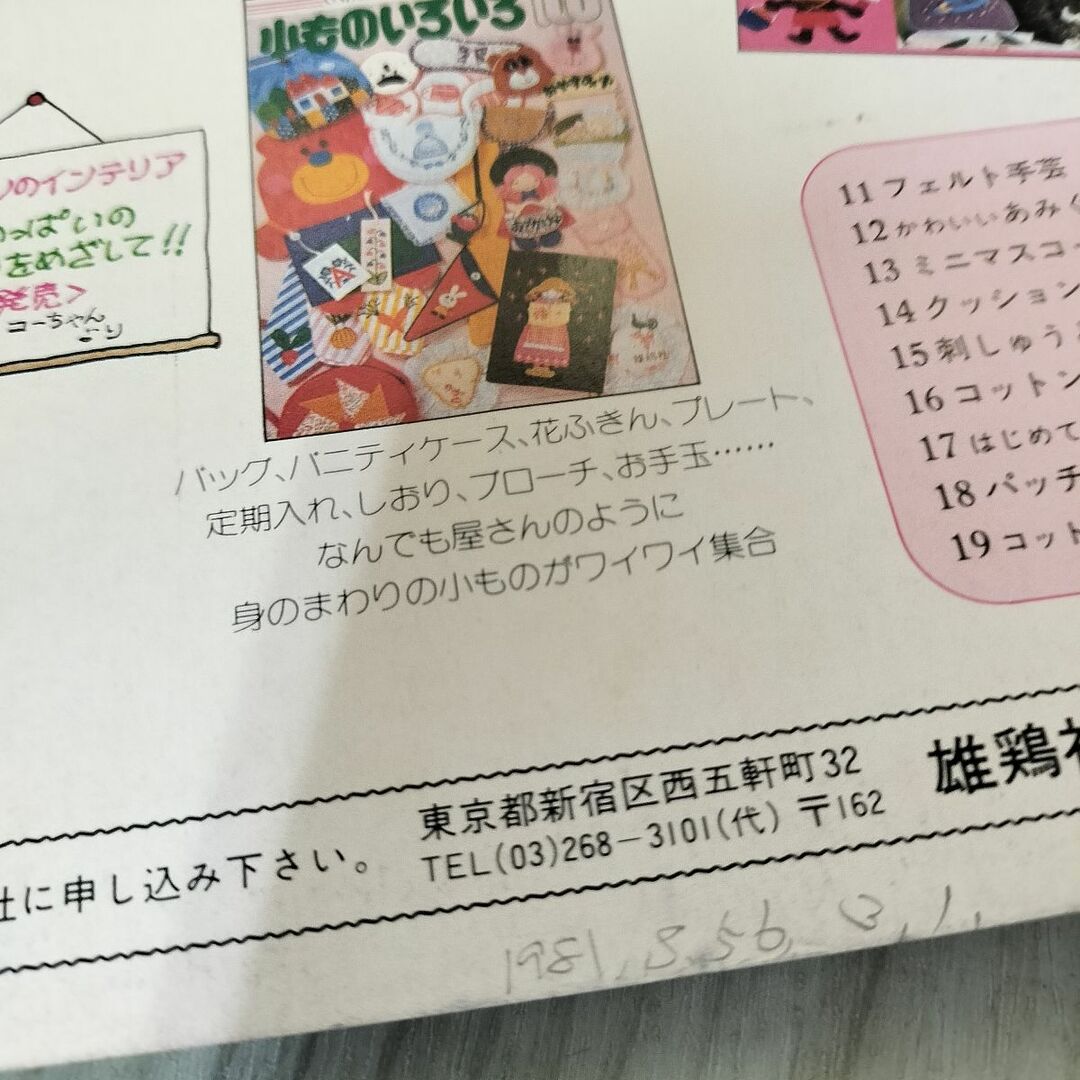 小ものいろいろ100
ルのインテリア
っぱいの
をめざして!!
発売>
コーちゃん
より
バッグ、バニティケース、花ふきん、プレート、
定期入れ、しおり、ブローチ、お手玉……
なんでも屋さんのように
身のまわりの小ものがワイワイ集合
11 フェルト手芸
12 かわいいあみぐ
13 ミニマスコー
14 クッション
15 刺しゅう
16 コットン
17 はじめて
18 パッチ
19 コット
社に申し込み下さい。
東京都新宿区西五軒町32
TEL(03)268-3101(代) 〒162
雄鶏社
1981, S.56, 3,1,